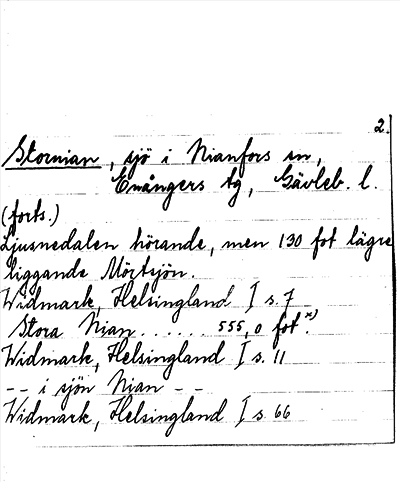 2.
Stornian, sjö i Nianfors sn,
Enångers tg, Gävleb. l.
(forts.)
Ljusnedalen hörande, men 130 fot lägre
liggande Mörtsjön.
Widmark, Helsingland I s. 7
Stora Nian..... 555,0 fot.*)
Widmark, Helsingland I s. 11
-- i sjön Nian --
Widmark, Helsingland I s 66